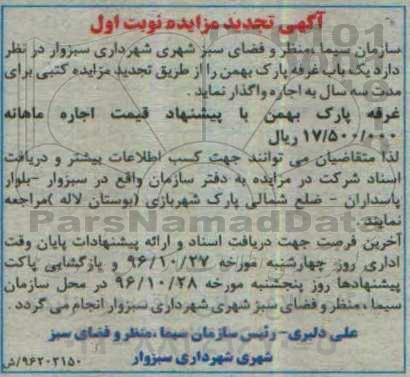 آگهی تجدید مزایده نوبت اول
سازمان سیما ،منظر و فضای سبز شهری شهرداری سبزوار در نظر
دارد یک باب غرفه پارک بهمن را از طریق تجدید مزایده کتبی برای
مدت سه سال به اجاره واگذار نماید .
غرفه پارک بهمن با پیشنهاد قیمت اجاره ماهانه
۱۷/۵۰۰/۰۰۰ ریال
لذا متقاضیان می توانند جهت کسب اطلاعات بیشتر و دریافت
اسناد شرکت در مزایده به دفتر سازمان واقع در سبزوار -بلوار
پاسداران - ضلع شمالی پارک شهربازی (بوستان لاله )مراجعه
نمایند.
آخرین فرصت جهت دریافت اسناد و ارائه پیشنهادات پایان وقت
اداری روز چهارشنبه مورخه ۹۶/۱۰/۲۷ و بازگشایی پاکت
پیشنهادها روز پنجشنبه مورخه ۹۶/۱۰/۲۸ در محل سازمان
سیما ،منظر و فضای سبز شهری شهرداری سبزوار انجام می گردد .
علی دلبری- رئیس سازمان سیما ،منظر و فضای سبز
شهری شهرداری سبزوار
۹۶۲۰۲۱۵۰/ش
ParsNamadData